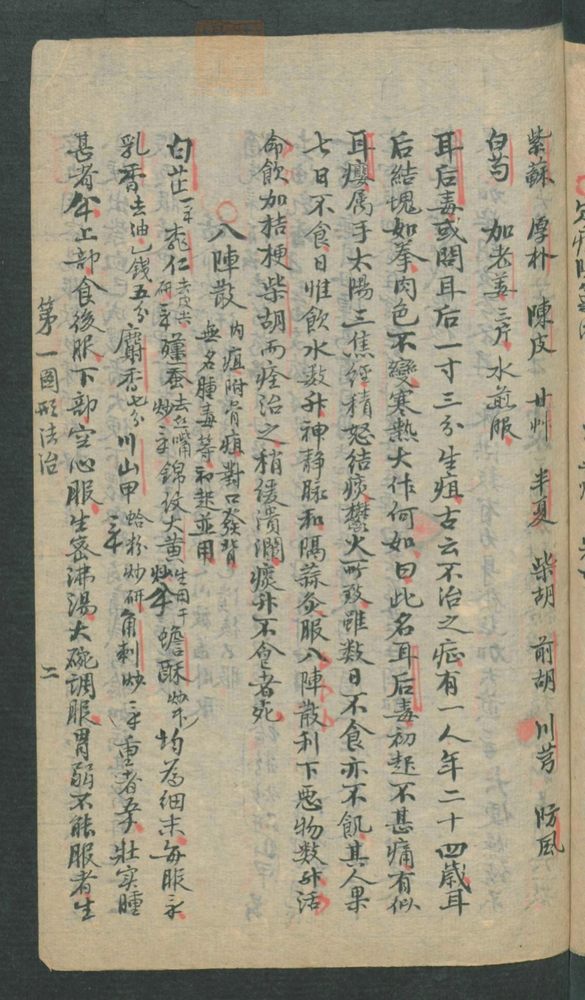 紫蘇 厚朴 陳皮 甘艸 半夏 柴胡 前胡 川芎 防風
白芍 加老姜三片 水煎服
耳后毒或問耳后一寸三分生疽古云不治之症有一人年二十四歲耳
后結塊如拳肉色不變寒熱大作何如曰此名耳后毒初起不甚痛有似
耳癭属于太陽三焦經積怒结痰鬱火所致雖数日不食亦不飢其人果
七日不食日惟飲水数升神静脉和隔蒜灸服八陣散利下悪物数升活
命飲加桔梗柴胡而痊治之稍緩潰瀾痰升不食者死
八陣散 内疽附骨疽對口發背
無名腫毒等初起並用
白芷 桃仁去皮尖 殭蚕去嘴 錦紋大黄 蟾酥 均為細末每服
乳香去油乙錢五分 麝香七分 川山甲蛤粉炒研 角刺炒 重者 壯实腫
甚者 上部食後服下部空心服生蜜沸湯大碗調服胃弱不能服者生
第一圖形法治 二